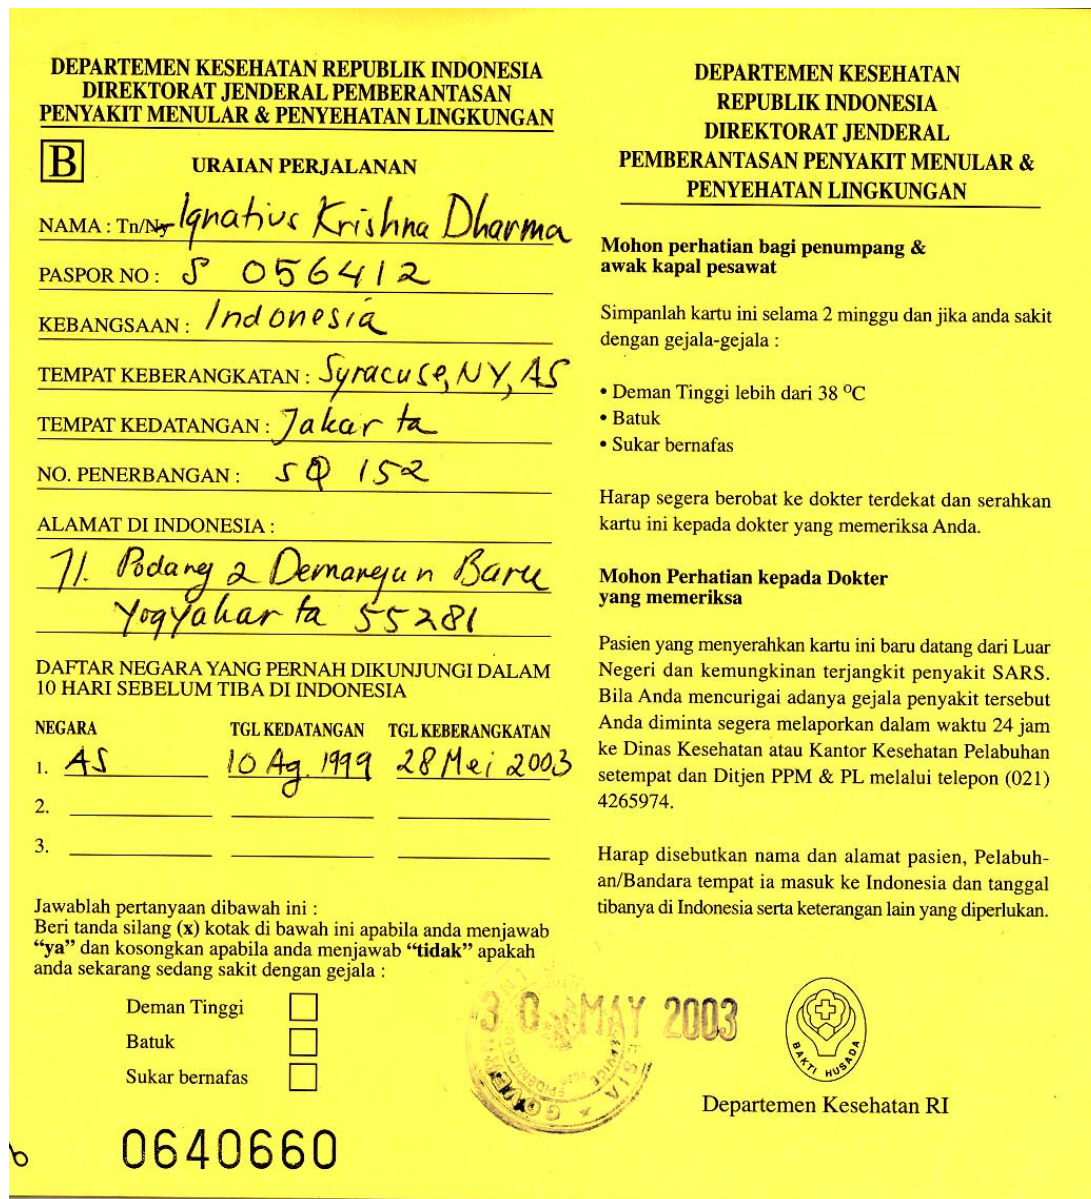 DEPARTEMEN KESEHATAN REPUBLIK INDONESIA
DIREKTORAT JENDERAL PEMBERANTASAN
PENYAKIT MENULAR & PENYEHATAN LINGKUNGAN
B
URAIAN PERJALANAN
NAMA : Tn/Ny Ignatius Krishna Dharma
PASPOR NO : S 056412
KEBANGSAAN : Indonesia
TEMPAT KEBERANGKATAN : Syracuse, NY, AS
TEMPAT KEDATANGAN : Jakarta
NO. PENERBANGAN : SQ 152
ALAMAT DI INDONESIA :
Jl. Podang 2 Demangan Baru
Yogyakarta 55281
DAFTAR NEGARA YANG PERNAH DIKUNJUNGI DALAM
10 HARI SEBELUM TIBA DI INDONESIA
NEGARA TGL KEDATANGAN TGL KEBERANGKATAN
1. AS 10 Ag. 1999 28 Mei 2003
2.
3.
Jawablah pertanyaan dibawah ini :
Beri tanda silang (x) kotak di bawah ini apabila anda menjawab
“ya” dan kosongkan apabila anda menjawab “tidak” apakah
anda sekarang sedang sakit dengan gejala :
Deman Tinggi
Batuk
Sukar bernafas
0640660
DEPARTEMEN KESEHATAN
REPUBLIK INDONESIA
DIREKTORAT JENDERAL
PEMBERANTASAN PENYAKIT MENULAR &
PENYEHATAN LINGKUNGAN
Mohon perhatian bagi penumpang &
awak kapal pesawat
Simpanlah kartu ini selama 2 minggu dan jika anda sakit
dengan gejala-gejala :
• Deman Tinggi lebih dari 38 ºC
• Batuk
• Sukar bernafas
Harap segera berobat ke dokter terdekat dan serahkan
kartu ini kepada dokter yang memeriksa Anda.
Mohon Perhatian kepada Dokter
yang memeriksa
Pasien yang menyerahkan kartu ini baru datang dari Luar
Negeri dan kemungkinan terjangkit penyakit SARS.
Bila Anda mencurigai adanya gejala penyakit tersebut
Anda diminta segera melaporkan dalam waktu 24 jam
ke Dinas Kesehatan atau Kantor Kesehatan Pelabuhan
setempat dan Ditjen PPM & PL melalui telepon (021)
4265974.
Harap disebutkan nama dan alamat pasien, Pelabuh-
an/Bandara tempat ia masuk ke Indonesia dan tanggal
tibanya di Indonesia serta keterangan lain yang diperlukan.
30 MAY 2003
BAKTI HUSADA
Departemen Kesehatan RI